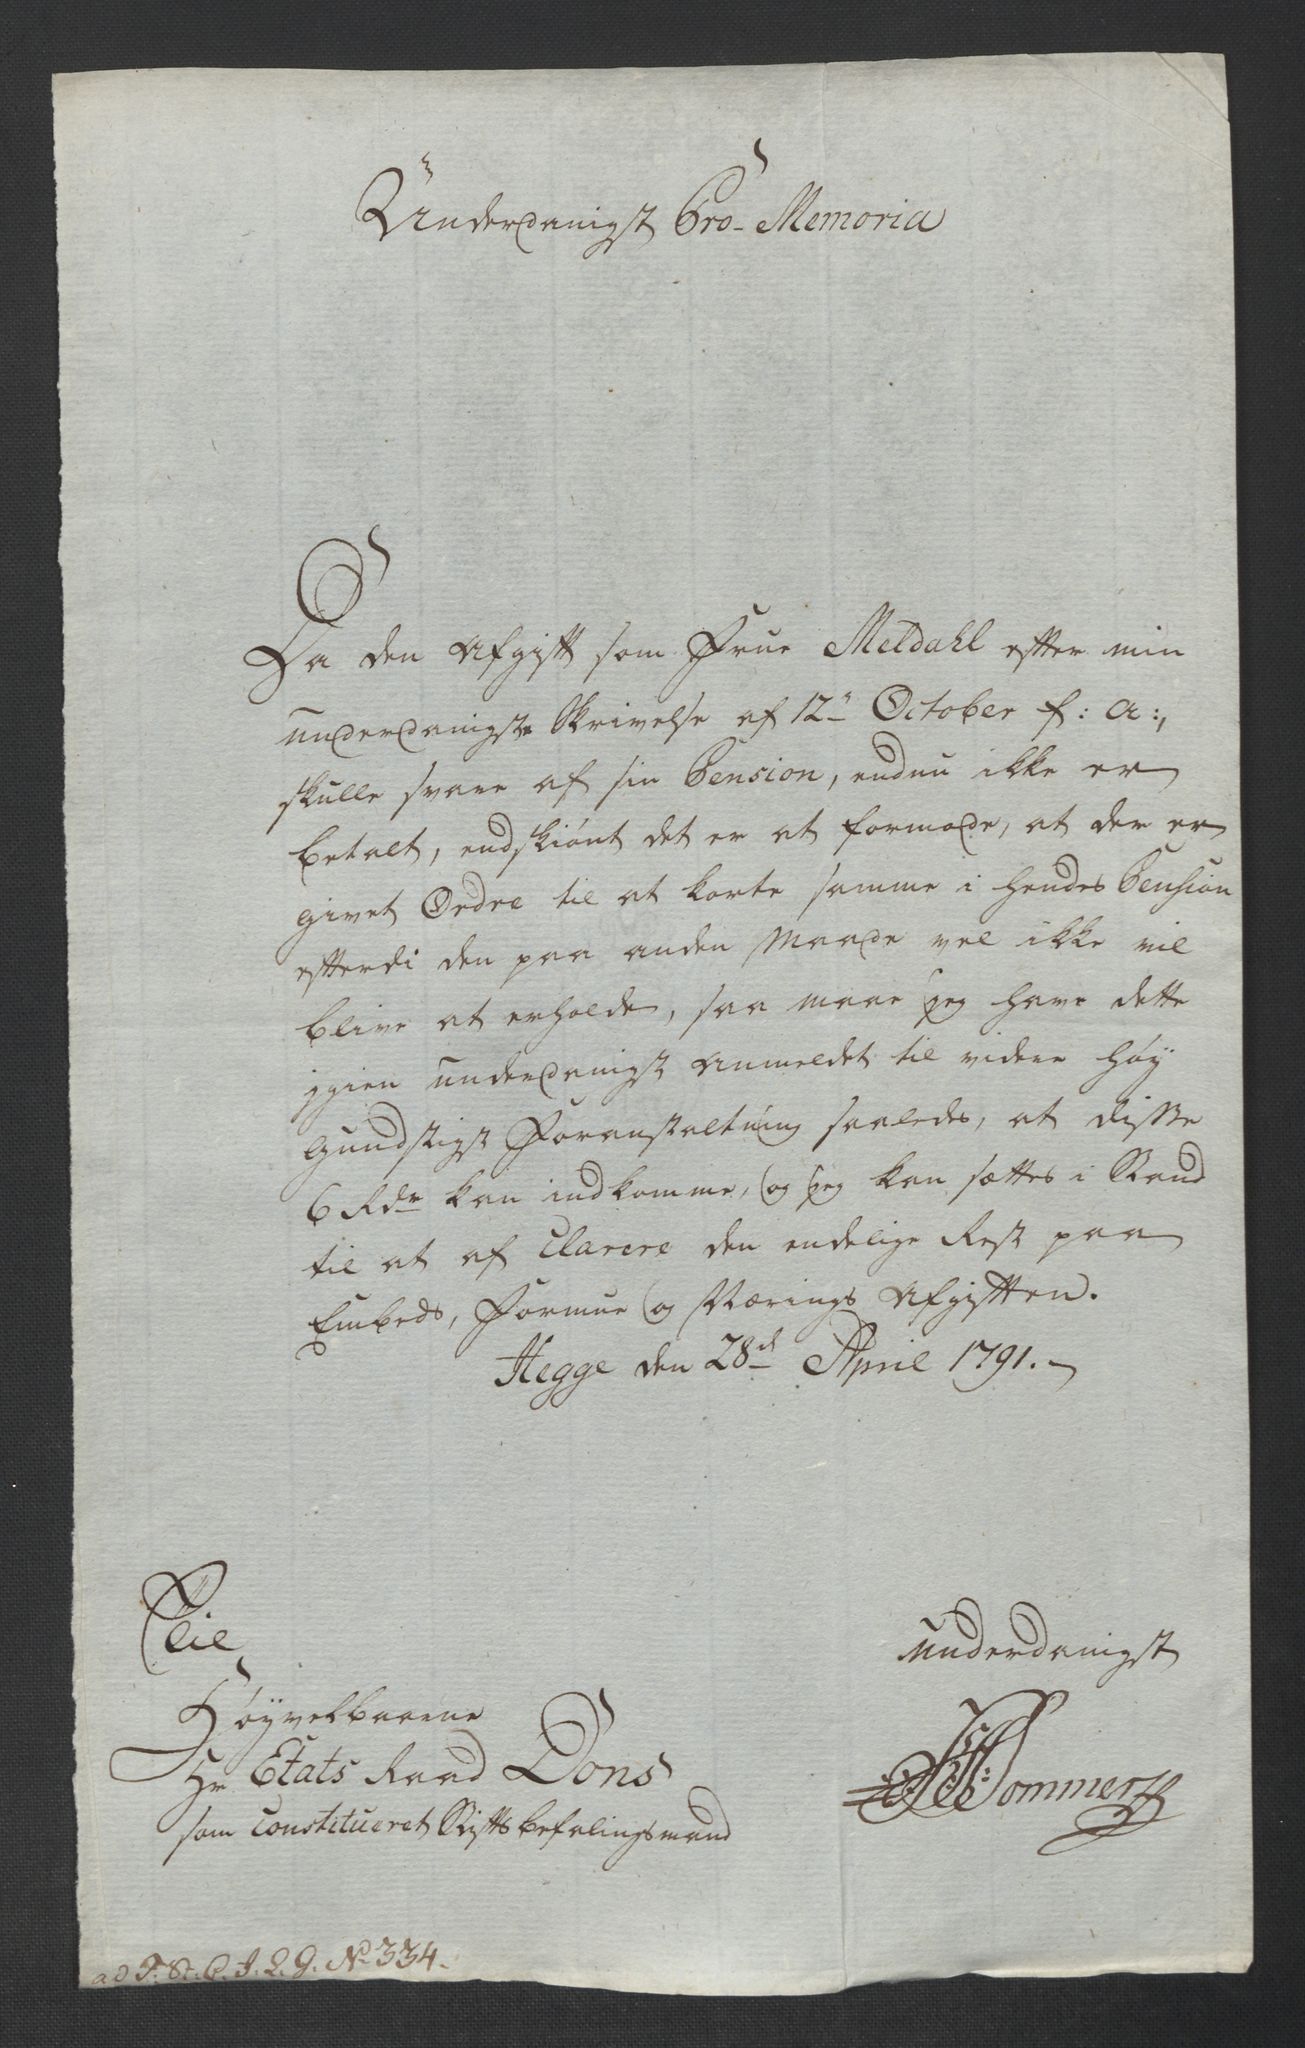 Underdanigst Pro Memoria
Da den Afgift som Frue Meldahl efter min
underdanigste Skrivelse af 12te October f: A:,
skulle svare af sin Pension, endnu ikke er
betalt, endskiønt det er at formode, at der er
givet Ordre til at korte samme i hendes Pension
efterdi den paa anden Maade vel ikke vil
blive at erholde, saa maae jeg have dette
igien underdanigst anmeldet til videre høy
gundstigst Foranstaltning saaledes, at disse
6 Rdr kan indkomme, og jeg kan sættes i Stand
til at af Clarere den endelige Rest paa
Embeds, Formue og Nærings Afgiften.
Hegge den 28d April 1791.
Til
Høyvelbaarne
Hr Etats Raad Dons
som constitueret Stiftsbefalingsmand
underdanigst
Sommer
ad F. St. C. J. L. G. No 334.